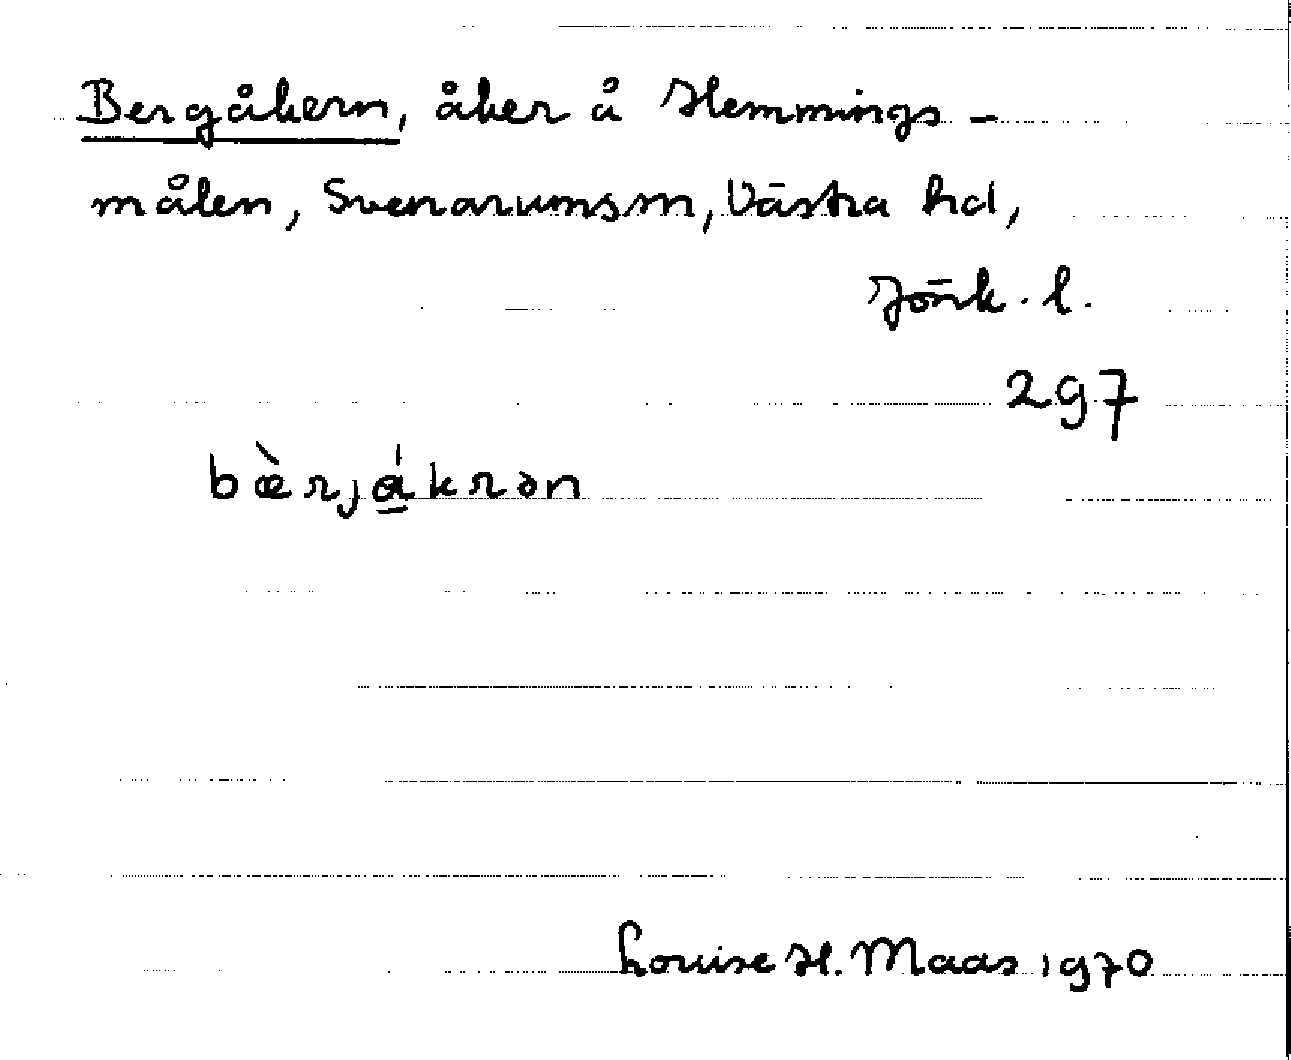 Bergåkern, åker å Hemmings-
målen, Svenarumsm, Västra hd,
Jönk. l.
297
bæ̀rjákrən
Louise H. Maas 1970